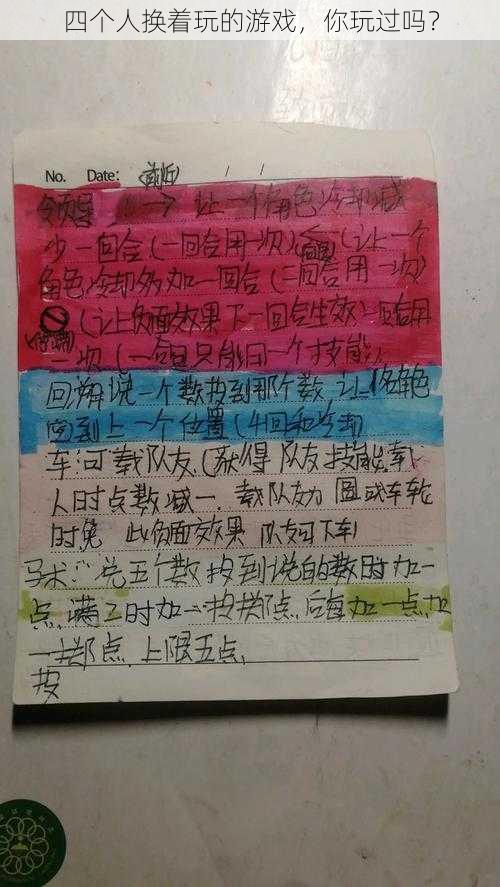 四个人换着玩的游戏，你玩过吗？
No. Date: (前近) / /
领导 → 让一个角色冷却减
少一回合(一回合用一次)(后退)(让一个
角色冷却多加一回合(三回合用一次)
(让负面效果下一回合生效)一回合用
一次(一合且只能用一个技能)
回 说一个数投到那个数,让 角色
到上一个位置(4回合冷却)
车:可载队友.(获得队友技能,载
人时点数减一.载队友为圆或车轮
时免 此负面效果 队友可下车)
马术: 说五个数投到说的数时加一
点,满 时加一 掷点,后每加一点,加
一掷点.上限五点.
投